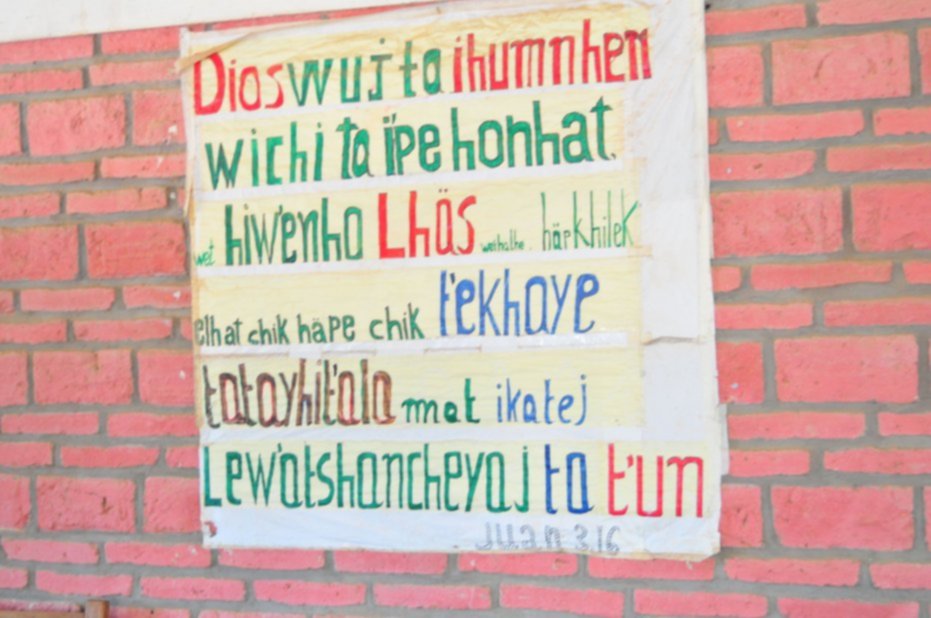 Dios wuj ta ihumnhen
wichi ta ïpe honhat.
wet hiw'enho Lhös wethalhe. härkhilek
elhat chik häpe chik t'ekhaye
tatayhit'ala mat ikatej
Lew'atshancheyaj ta t'un
Juan 3.16